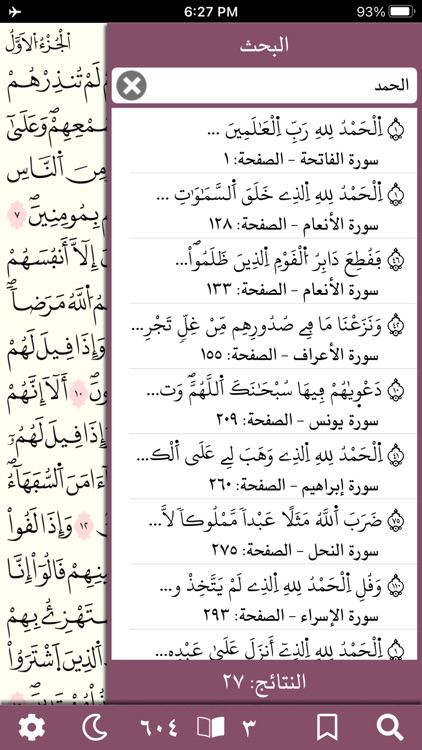 6:27 PM
93%
اَ۬لْجُزْءُ اُ۬لَاوَّلُ
البحث
الحمد
اِ۬لْحَمْدُ لِلهِ رَبِّ اِ۬لْعَٰلَمِينَ ... ١
سورة الفاتحة - الصفحة: ١
اِ۬لْحَمْدُ لِلهِ اِ۬لذِے خَلَقَ اَ۬لسَّمَٰوَٰتِ ... ١
سورة الأنعام - الصفحة: ١٢٨
فَقُطِعَ دَابِرُ اُ۬لْقَوْمِ اِ۬لذِينَ ظَلَمُواْۖ... ٤٦
سورة الأنعام - الصفحة: ١٣٣
وَنَزَعْنَا مَا فِے صُدُورِهِم مِّنْ غِلّٖ تَجْرِ... ٤٢
سورة الأعراف - الصفحة: ١٥٥
دَعْوٜيٰهُمْ فِيهَا سُبْحَٰنَكَ اَ۬للَّهُمَّۖ وَت... ١٠
سورة يونس - الصفحة: ٢٠٩
اِ۬لْحَمْدُ لِلهِ اِ۬لذِے وَهَبَ لِے عَلَي اَ۬لْكِ... ٤١
سورة إبراهيم - الصفحة: ٢٦٠
ضَرَبَ اَ۬للَّهُ مَثَلًا عَبْداٗ مَّمْلُوكاٗ لَّا... ٧٥
سورة النحل - الصفحة: ٢٧٥
وَقُلِ اِ۬لْحَمْدُ لِلهِ اِ۬لذِے لَمْ يَتَّخِذْ و... ١١٠
سورة الإسراء - الصفحة: ٢٩٣
اِ۬لْحَمْدُ لِلهِ اِ۬لذِےٓ أَنزَلَ عَلَيٰ عَبْدِهِ... ١
النتائج: ٢٧
لَمْ تُنذِرْهُمْ
سَمْعِهِمْۖ وَعَلَيٰٓ
مِنَ اَ۬لنَّاسِ
بِمُومِنِينَۖ ٧
إِلَّآ أَنفُسَهُمْ
اُ۬للَّهُ مَرَضاٗۖ
وَإِذَا قِيلَ لَهُمْ
١٠ أَلَآ إِنَّهُمْ
وَإِذَا قِيلَ لَهُمُۥٓ
ءَامَنَ اَ۬لسُّفَهَآءُۖ
١٢ وَإِذَا لَقُواْ
قَالُوٓاْ إِنَّا
يَسْتَهْزِئُ بِهِمْ
اَ۬لذِينَ اَ۪شْتَرَوُاْ
٣
٦٠٤